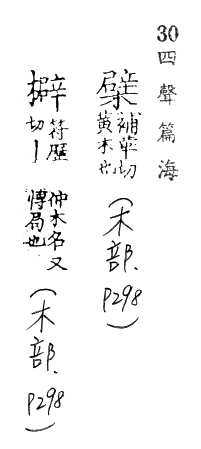 30 四聲篇海
檗 補革切 黃木也 (木部. P298)
符歷切 仲木名又 慱局也 (木部. P298)